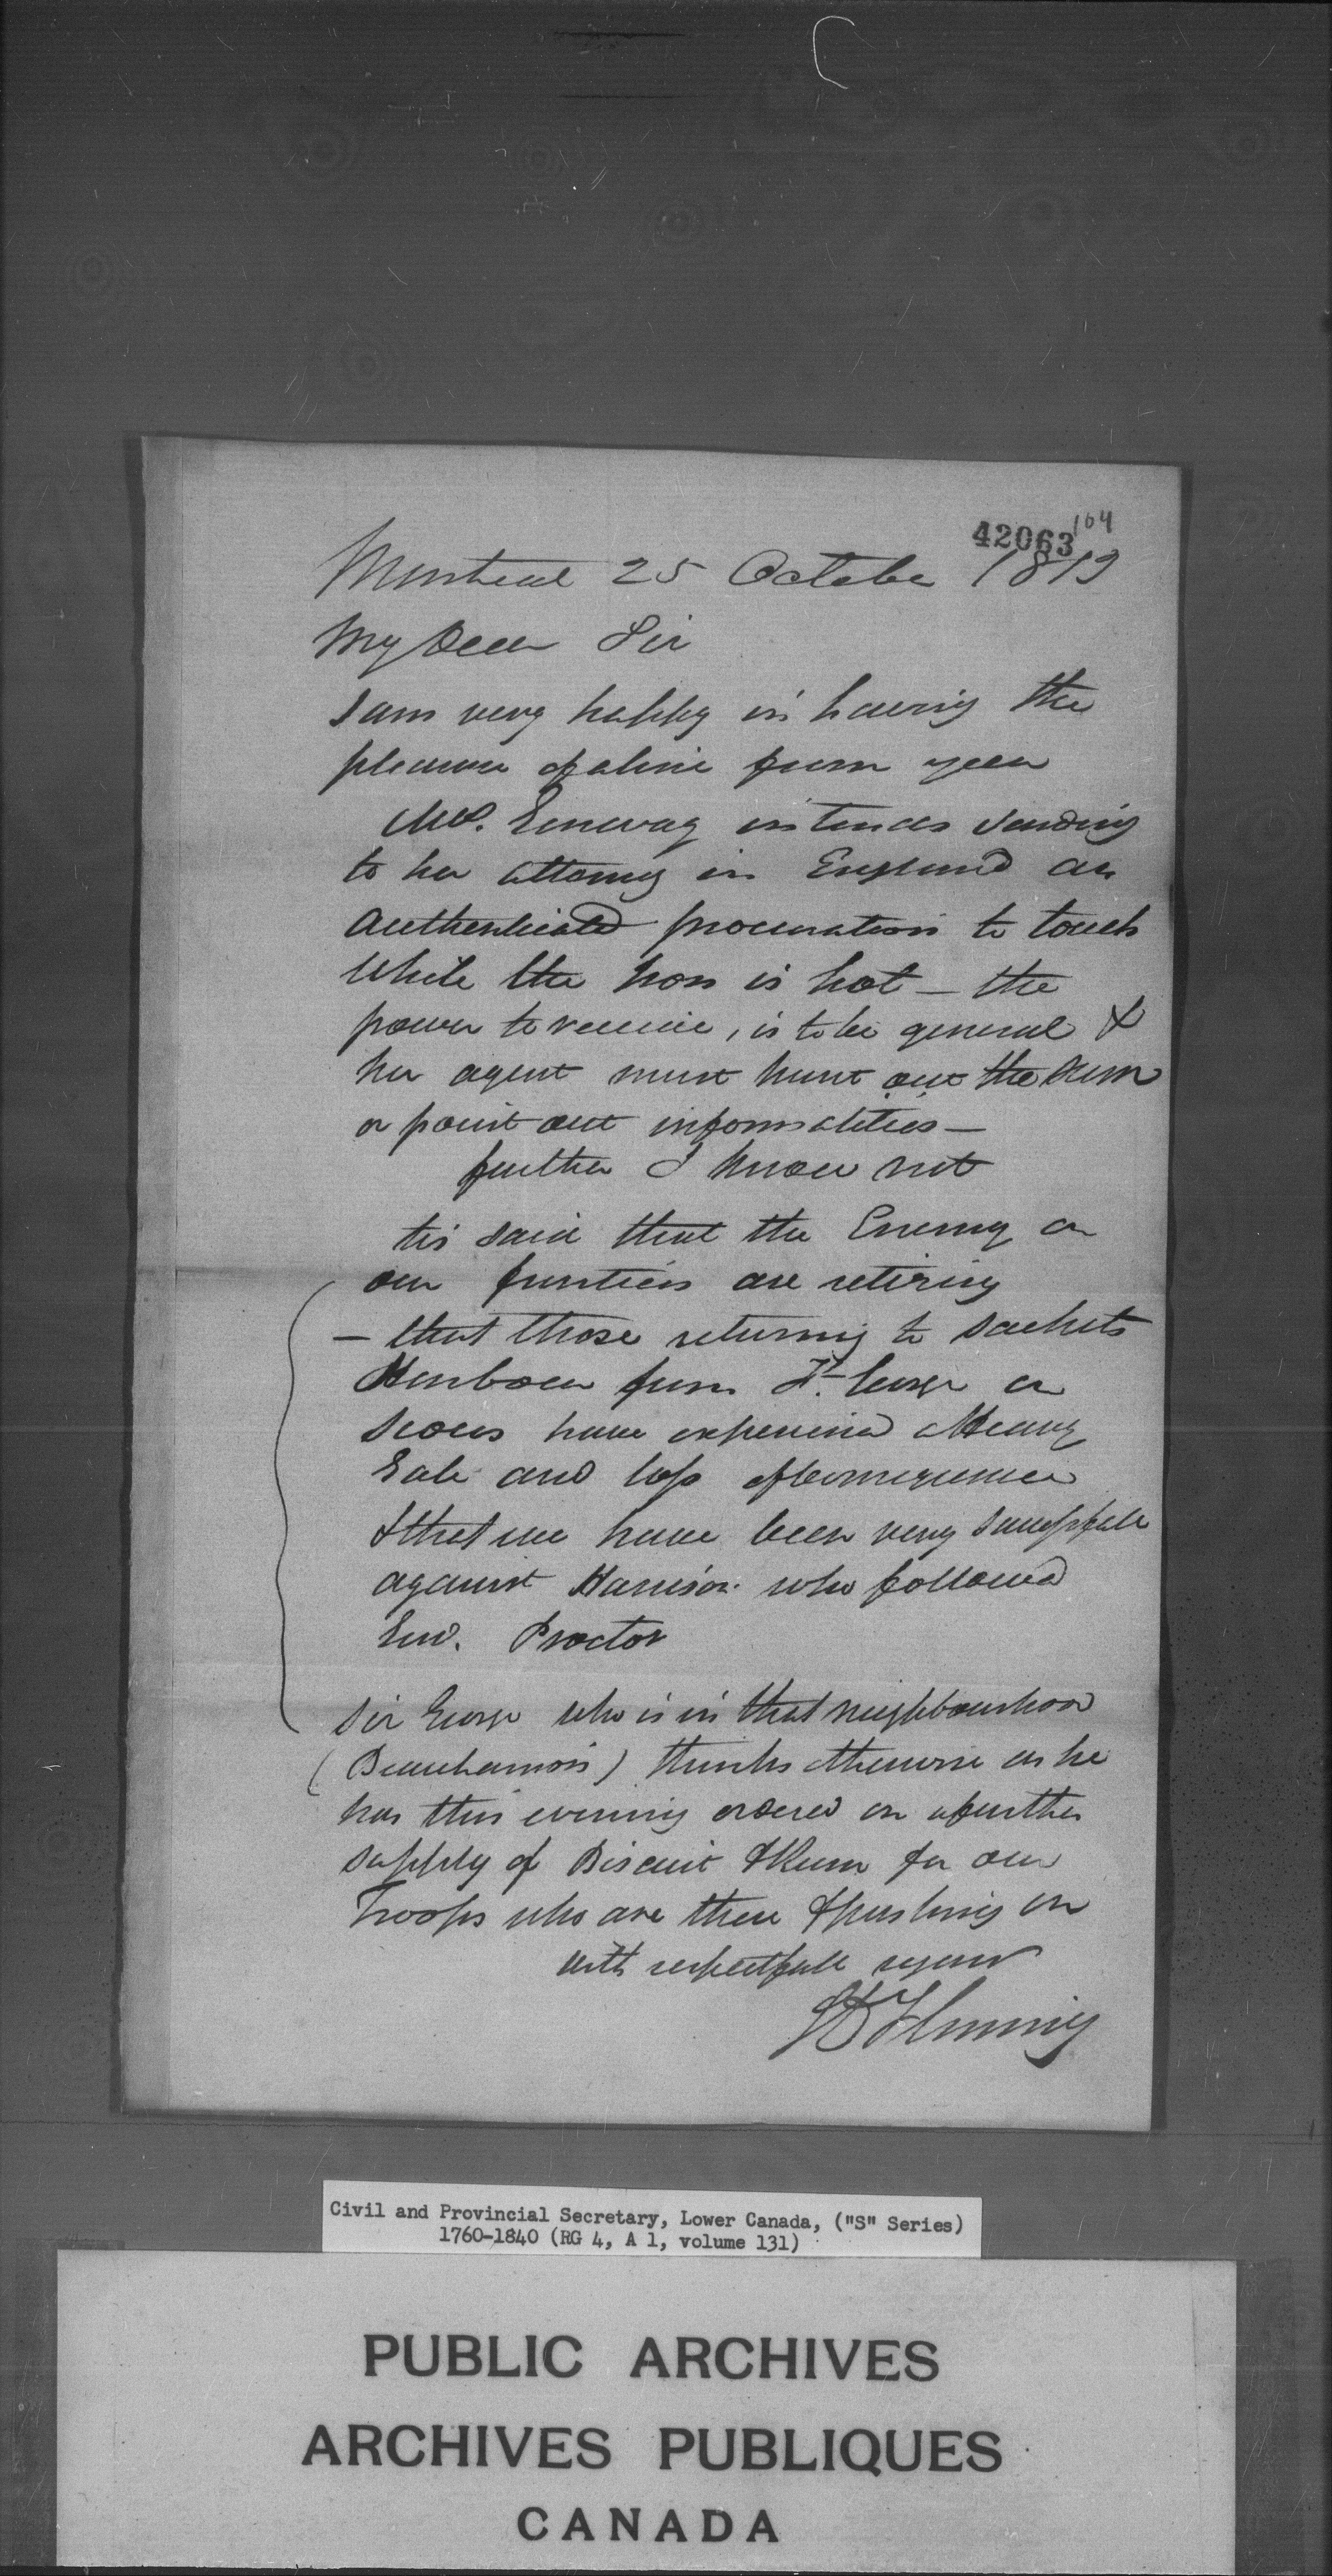 42063 104
Montreal 25 October 1813
My Dear Sir
I am very happy in having the
pleasure of a line from you
Mrs. intends sending
to her attorney in England an
authenticated procuration to touch
While the Iron is hot — the
power to receive, is to be general &
her agent must hunt out the sum
or point out informalities —
further I know not
tis said that the Enemy on
our frontiers are retiring
— that those returning to Sackets
Harbour from Ft. George on
Scows have experienced a Heavy
Gale and loss of consequence
& that we have been very successfull
against Harrison who followed
Genl. Proctor
Sir George who is in that neighbourhood
(Beauharnois) thinks otherwise as he
has this evening ordered on a further
supply of Biscuit & Rum for our
Troops who are there & pushing on
with respectfull regard
Fleming
Civil and Provincial Secretary, Lower Canada, ("S" Series)
1760-1840 (RG 4, A 1, volume 131)
PUBLIC ARCHIVES
ARCHIVES PUBLIQUES
CANADA